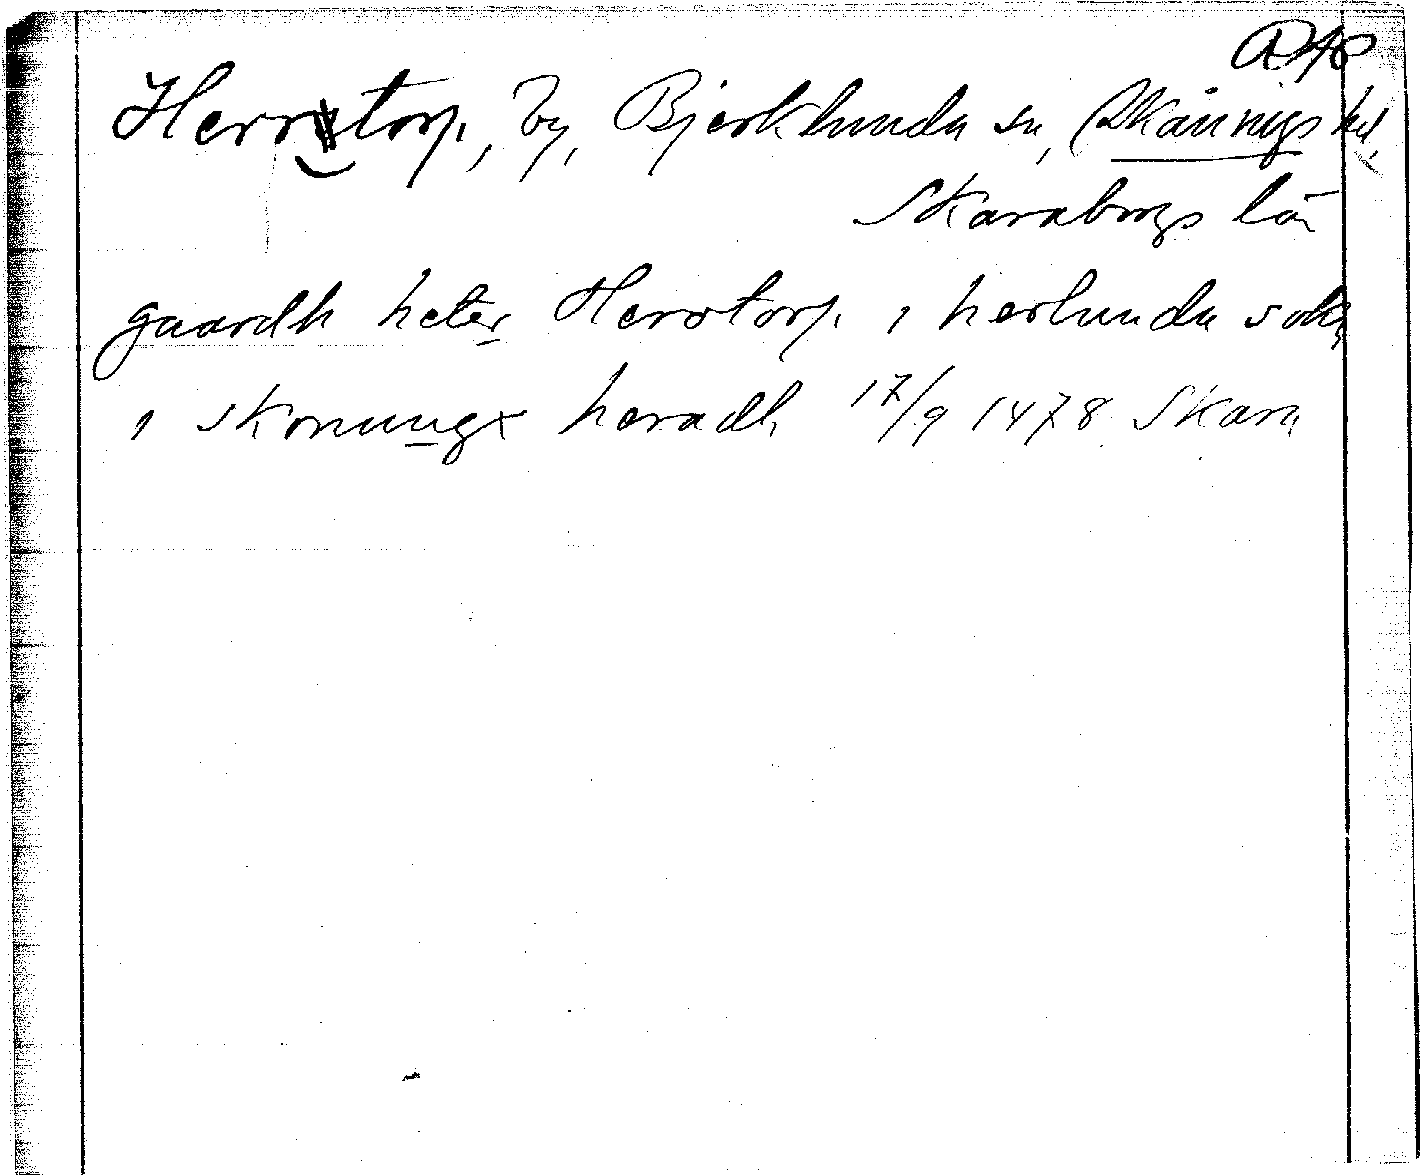 Herrtorp, by, Bjerklunda sn, Skånings hd,
Skaraborgs län
gaardh heter Herrtorp i herlunda
i skonungx heradh 17/9 1478 Skara